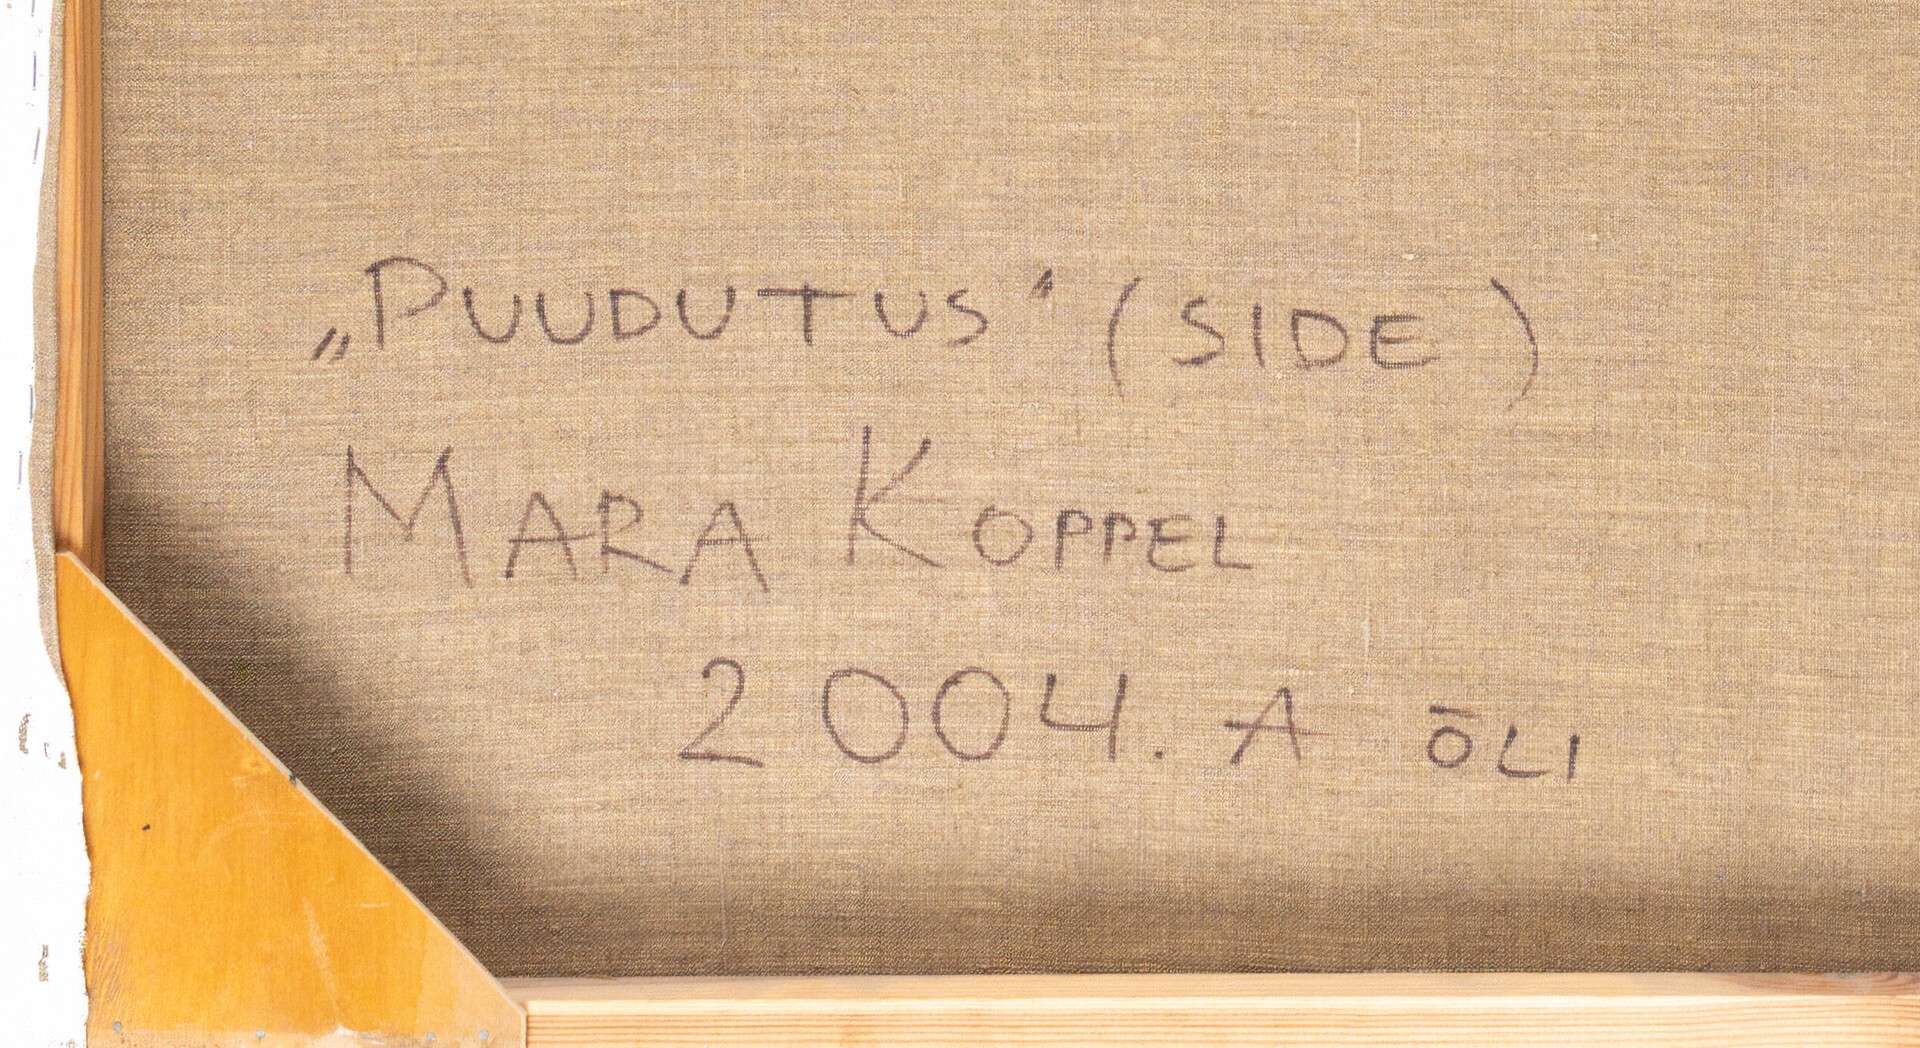 „PUUDUTUS" (SIDE)
MARA KOPPEL
2004. A ŌLI